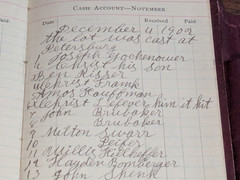 CASH ACCOUNT—NOVEMBER
Date Received Paid
December 4 1902
the lot was cast at
Petersburg
Joseph Gochenouer
Christ his son
Ben Risser
Christ Frank
Amos Kauffman
6 Christ Lefever him it hit
7 John Brubaker
8 Brubaker
9 Milton Swarr
10 Peifer
11 Hiestheffer
12 Hayden Bomberger
13 John Shenk